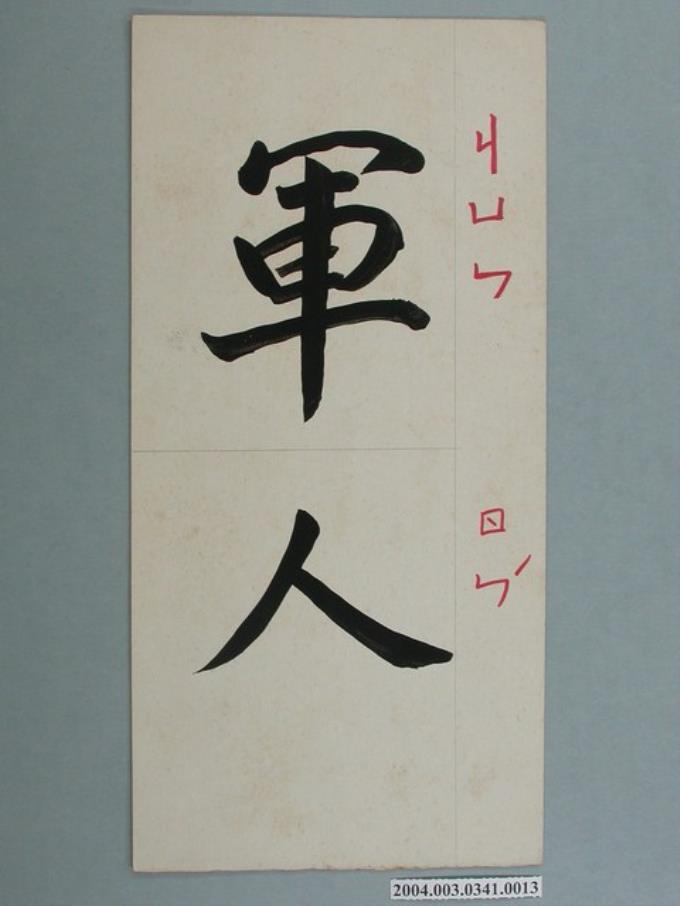 軍人
ㄐㄩㄣ ㄖㄣˊ
2004.003.0341.0013